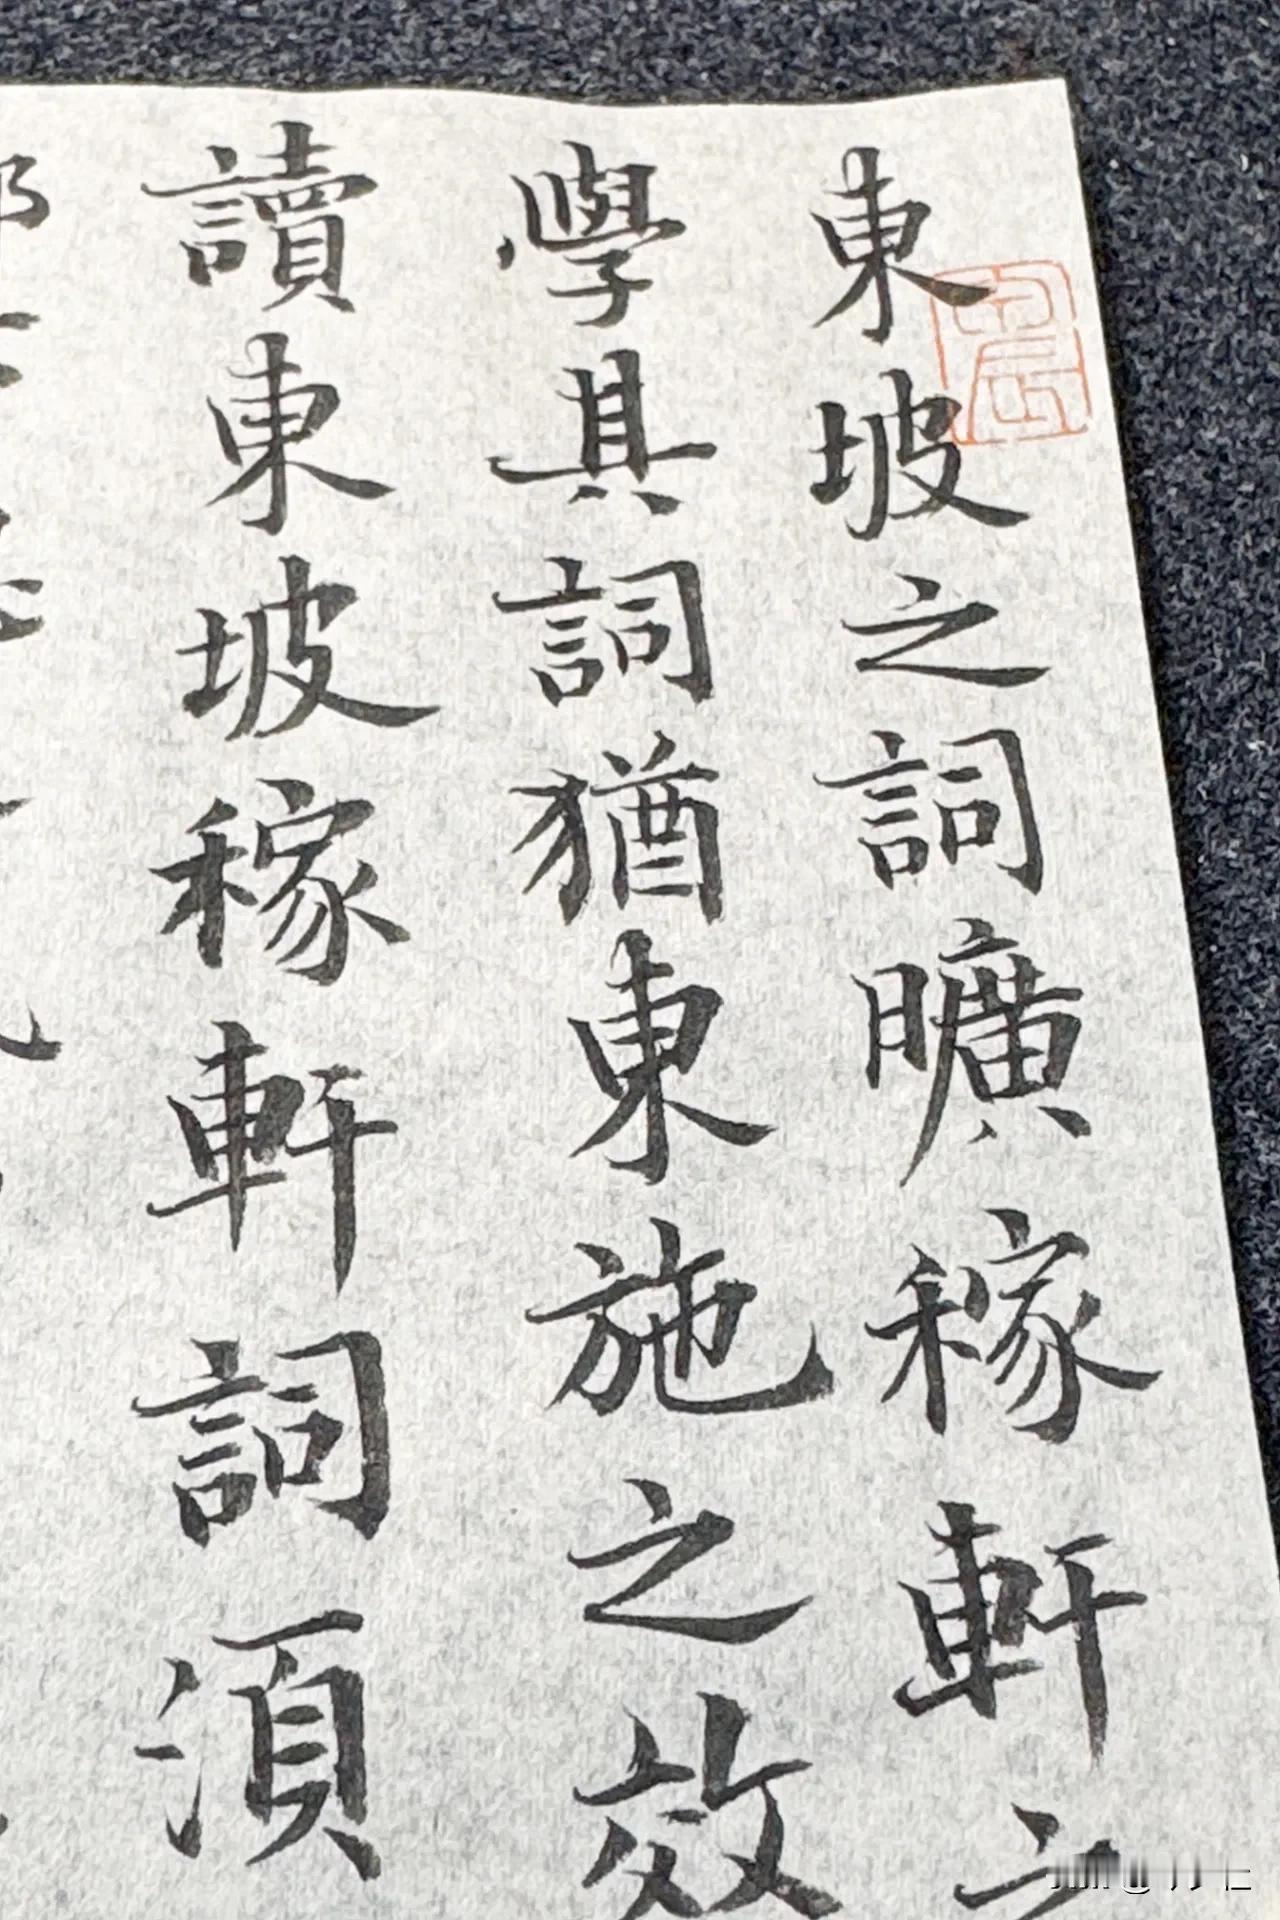 東坡之詞曠稼軒之
學其詞猶東施之效
讀東坡稼軒詞須